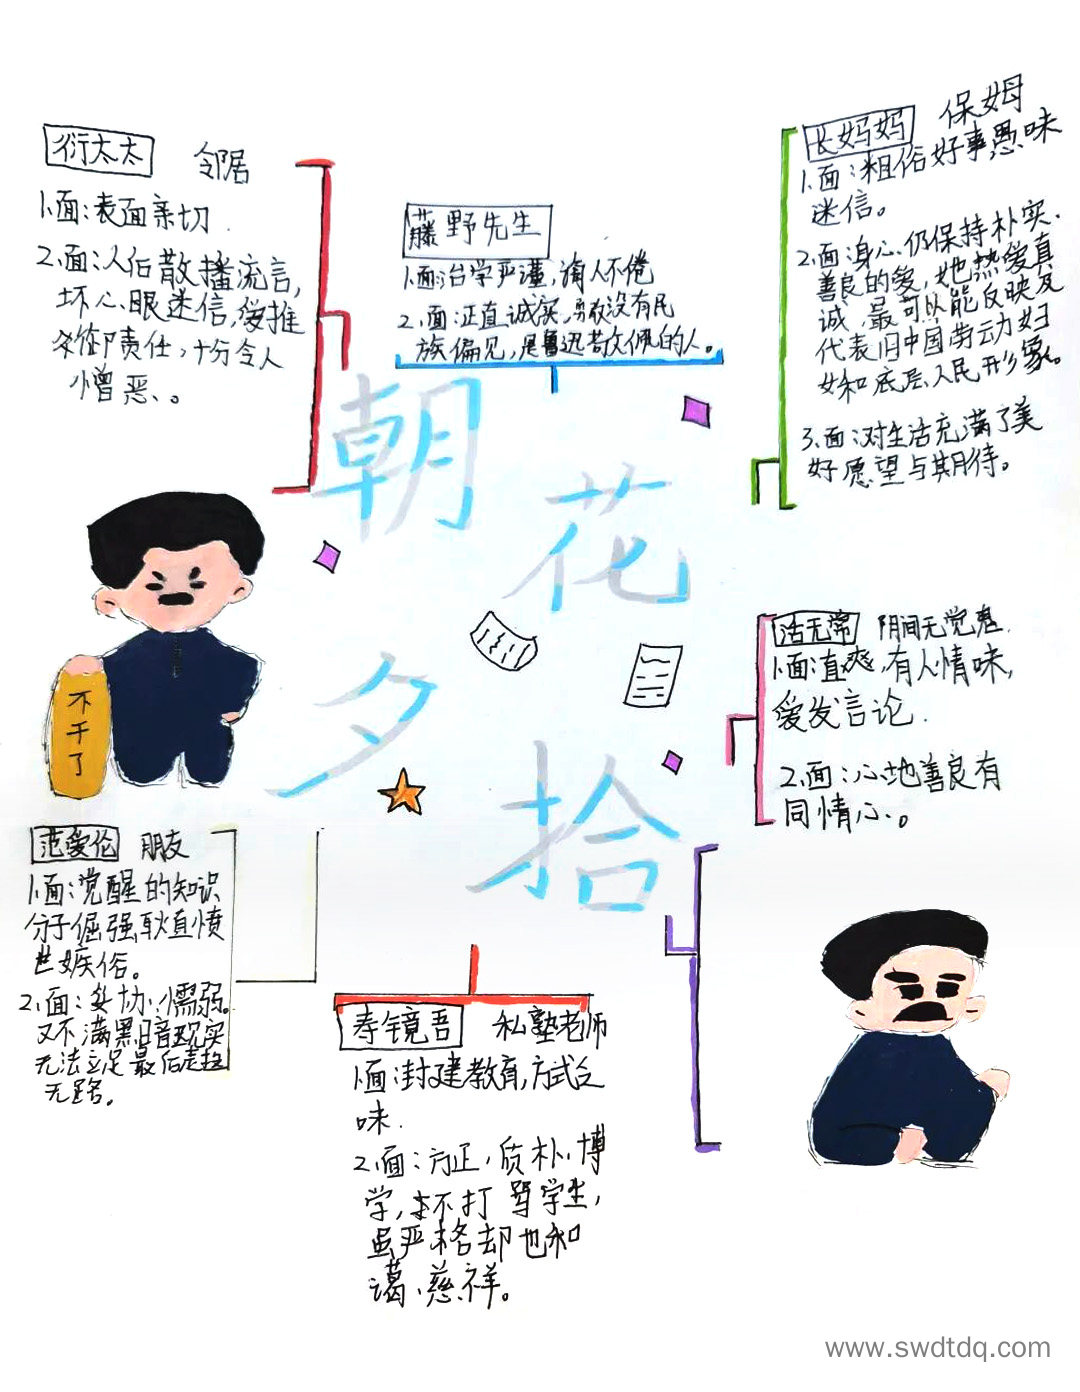 衍太太 邻居
1.面:表面亲切.
2.面:人后散播流言,
坏心眼迷信,爱推
卸责任,十分令人
憎恶、。
藤野先生
1.面:治学严谨,诲人不倦
2.面:正直诚实,没有民
族偏见,是鲁迅敬佩的人。
长妈妈 保姆
1.面:粗俗好事愚昧
迷信。
2.面:身心仍保持朴实.
善良的爱,她热爱真
诚,最可以能反映及
代表旧中国劳动妇
女和底层人民形象。
3.面:对生活充满了美
好愿望与其期待。
朝
花
夕
拾
不
干
了
活无常 阴间无觉鬼.
1.面:直爽,有人情味,
爱发言论.
2.面:心地善良有
同情心。
范爱伦 朋友
1.面:觉醒的知识
分子倔强耿直愤
世嫉俗。
2.面:妥协、懦弱.
又不满黑暗现实
无法立足最后走投
无路。
寿镜吾 私塾老师
1.面:封建教育,方式乏
味.
2.面:方正,质朴,博
学,不打骂学生,
虽严格却也和
蔼、慈祥。
www.swdtdq.com